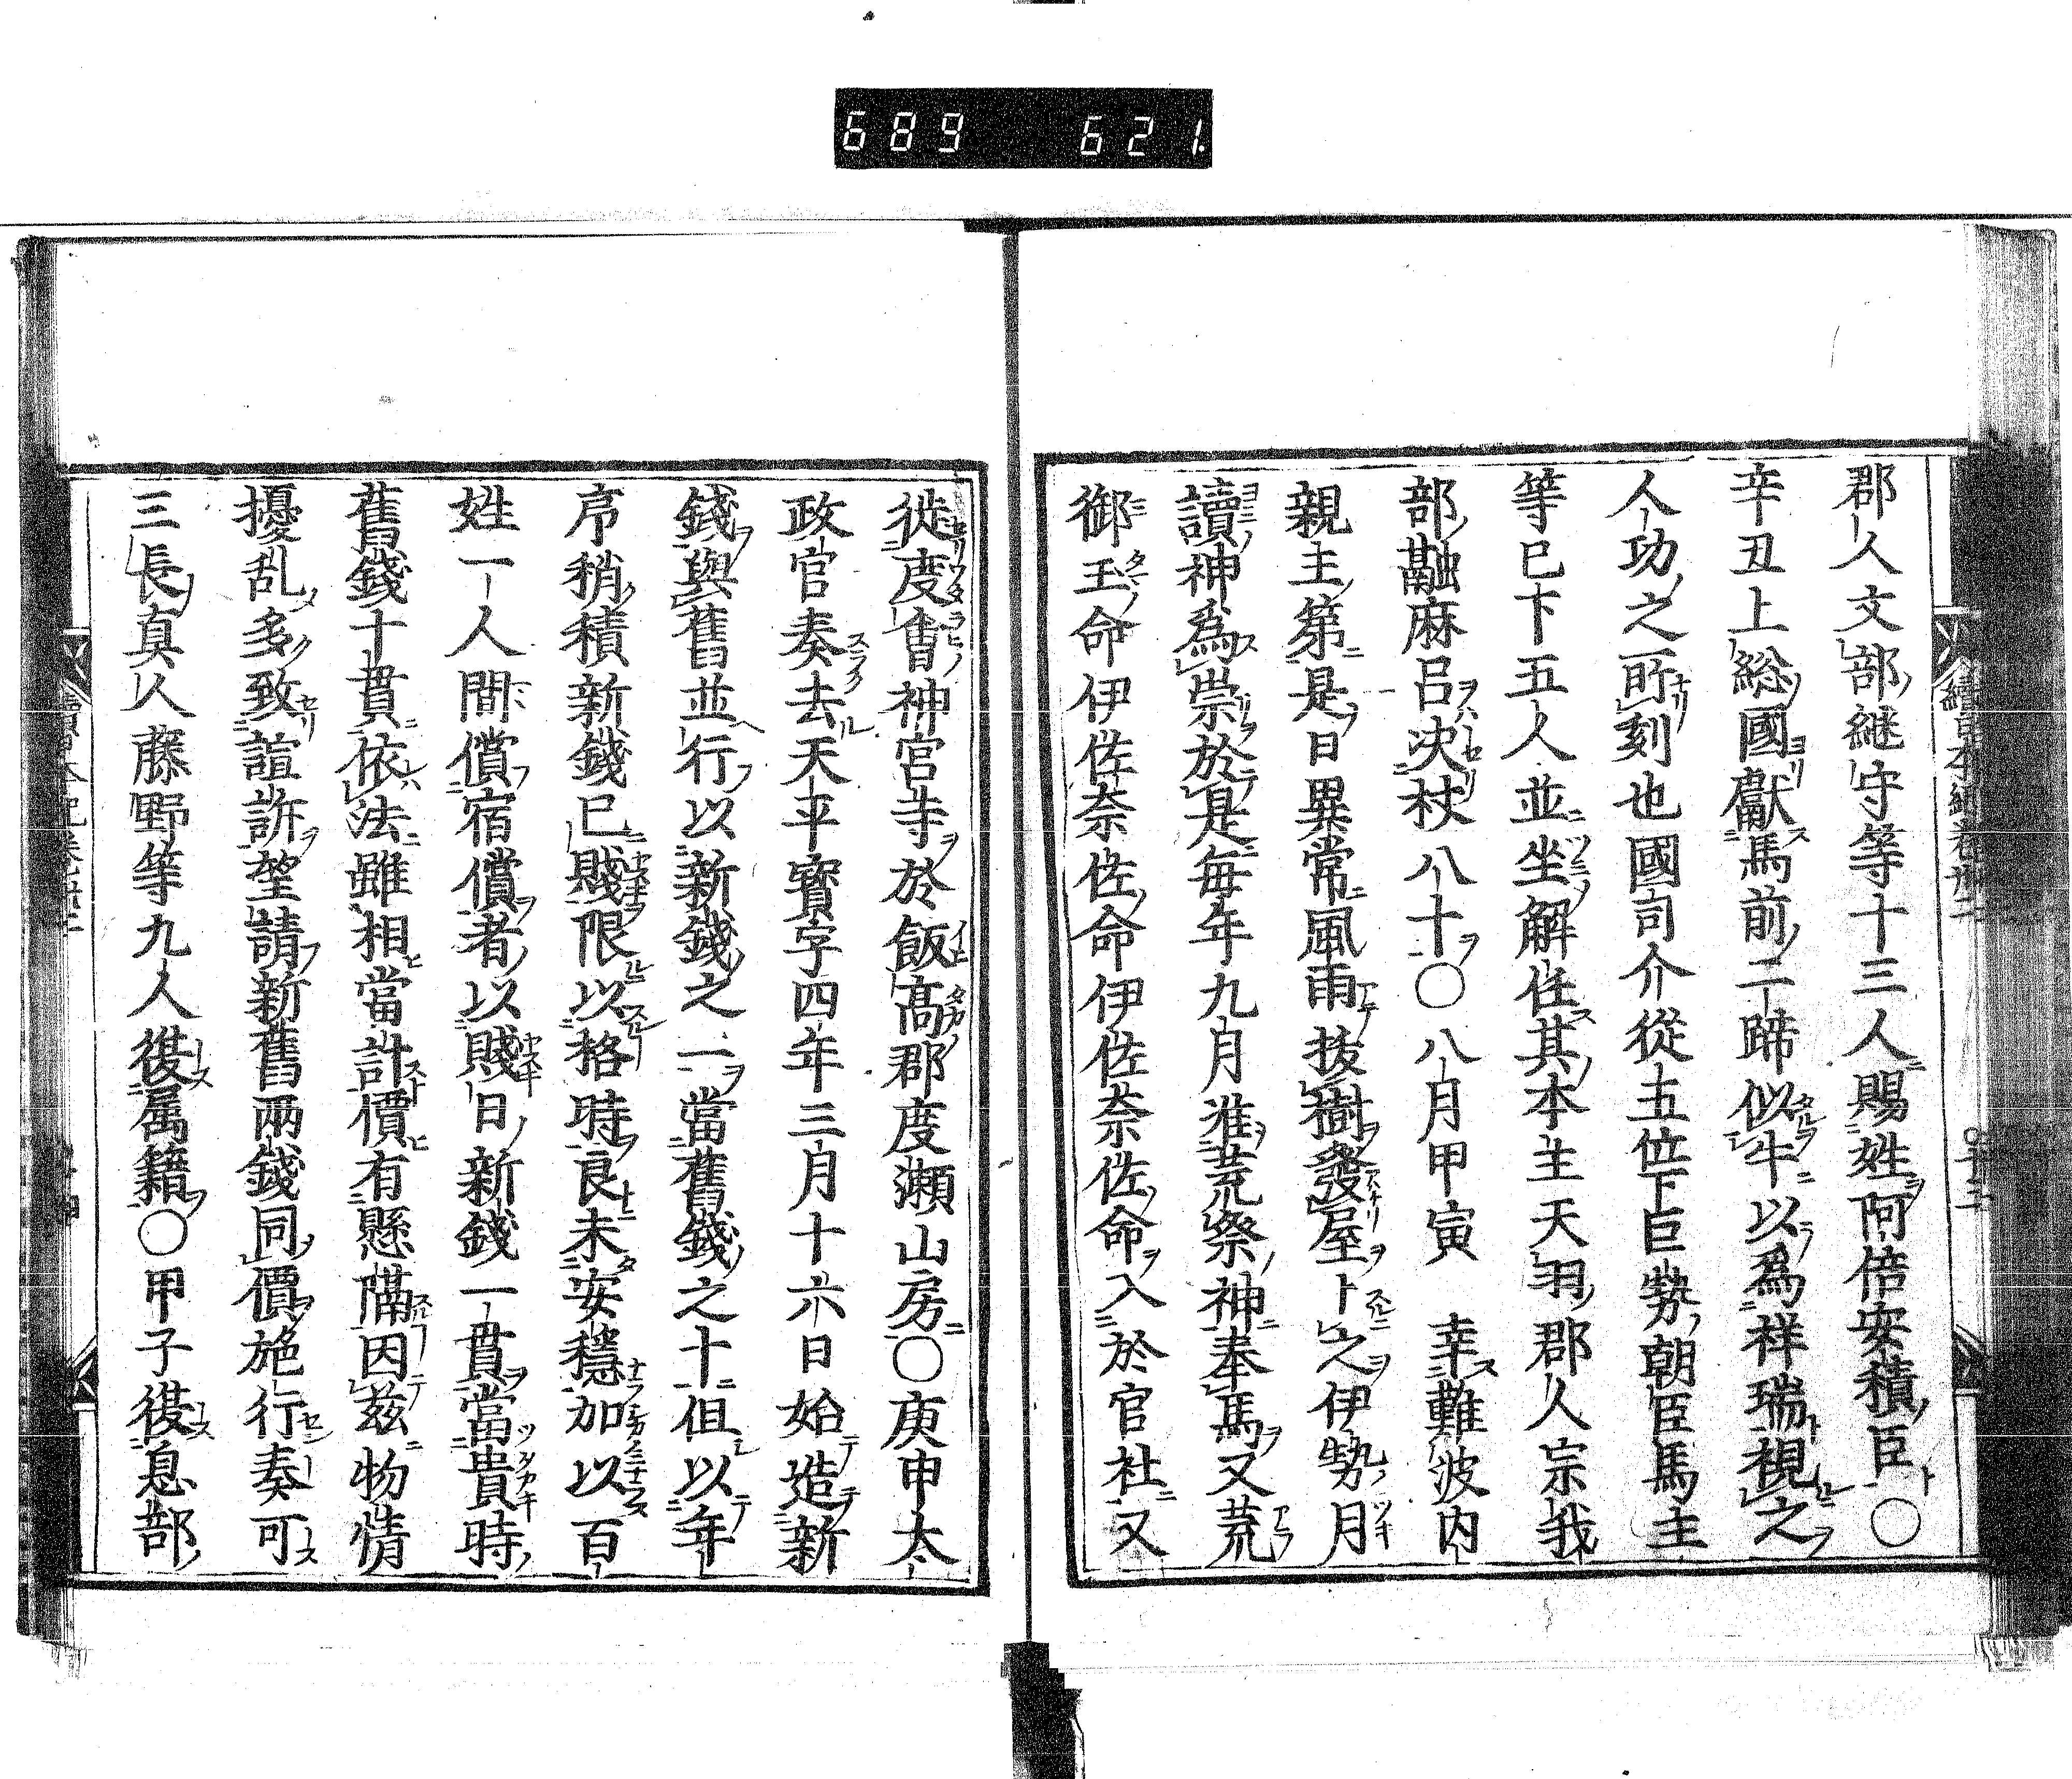 689 621.
續日本紀卷卅二
郡人文部継守等十三人賜姓阿倍安積臣〇
辛丑上総國獻馬前二蹄似牛以為祥瑞視之
人功之所刻也國司介從五位下巨勢朝臣馬主
等已下五人並坐解任其本主天羽郡人宗我
部虅麻呂决杖八十〇八月甲寅 幸難波内
親王第是日異常風雨抜樹發屋卜之伊勢月
讀神為祟於是每年九月准荒祭神奉馬又荒
御玉命伊佐奈佐命伊佐奈佐命入於官社又
徙度會神宮寺於飯髙郡度瀬山房〇庚申太
政官奏去天平寳字四年三月十六日始造新
錢與舊並行以新錢之一當舊錢之十但以年
序稍積新錢已賤限以格時良未安穏加以百
姓一人間償宿償者以賤日新錢一貫當貴時
舊錢十貫依法雖相當計價有懸隔因兹物情
擾乱多致諠訴望請新舊兩錢同價施行奏可
三長真人藤野等九人復属籍〇甲子復息部
續日本紀卷卅二